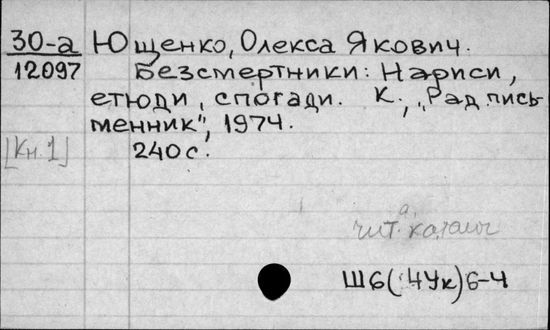 30-а Ющенко, Олекса Якович.
12097 Безсмертники: Нариси,
етюди, спогади. К., „Рад. пись
менник", 1974.
[Кн. 1] 240 с.
чит. каталог
Ш6(4Ук)6-4